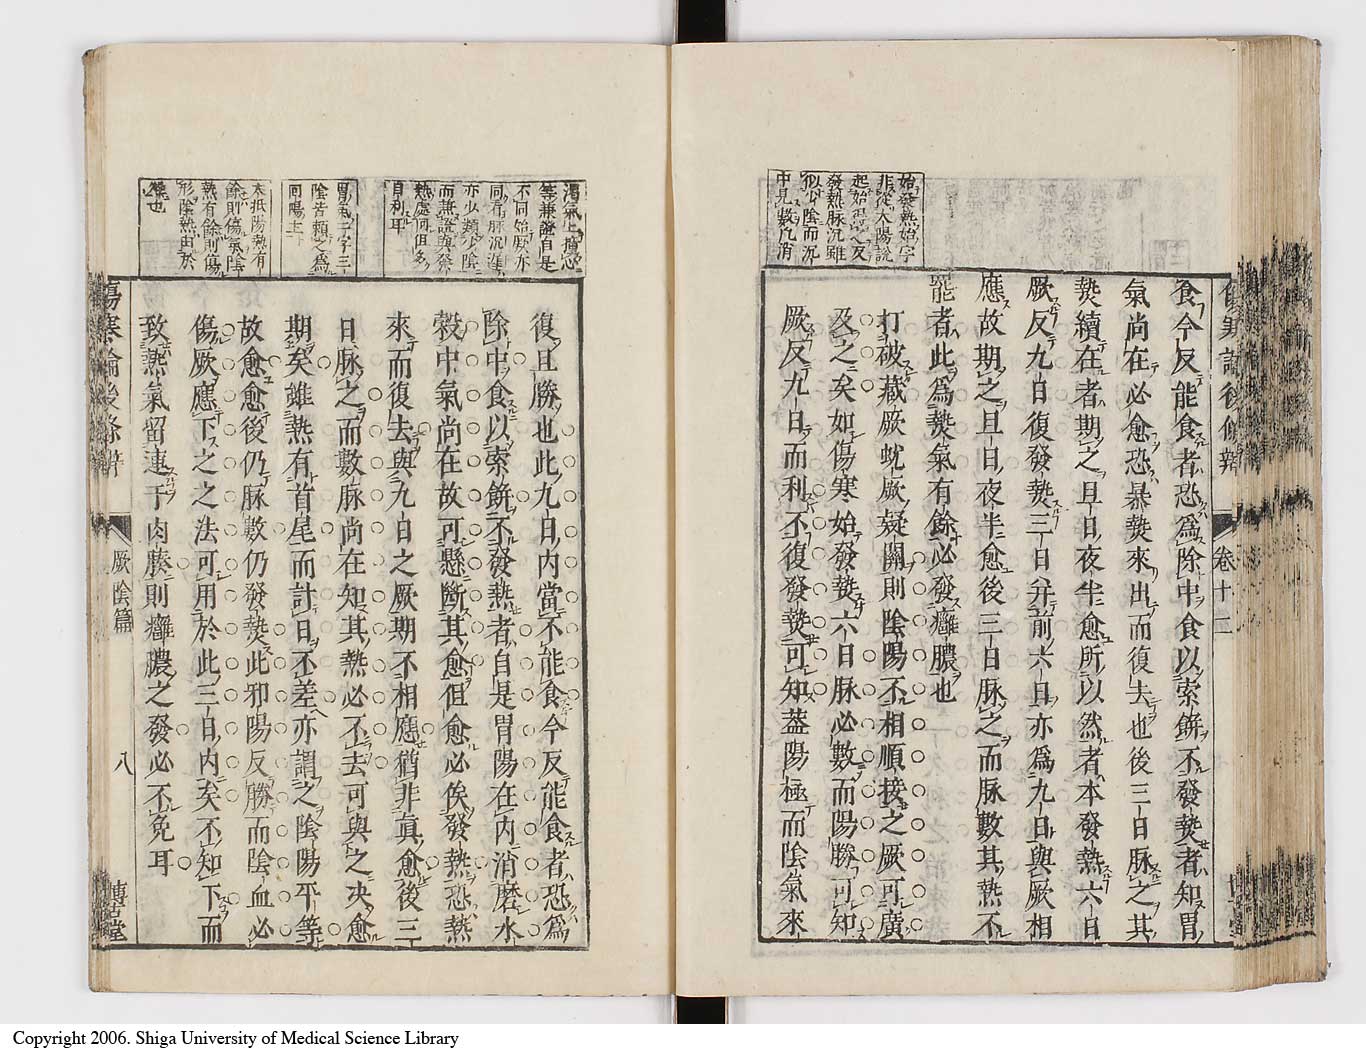 始發熱始字
非從太陽說
起始
發熱脉沉雖
似少陰而沉
中見數凡消
傷寒論後條辨
卷十二
食今反能食者恐爲除中食以索餅不發𤍠者知胃
氣尚在必愈恐暴𤍠來出而復去也後三日脉之其
𤍠續在者期之旦日夜半愈所以然者本發熱六日
厥反九日復發𤍠三日并前六日亦爲九日與厥相
應故期之旦日夜半愈後三日脉之而脉數其熱不
罷者此爲𤍠氣有餘必發癰膿也
打破藏厥蚘厥疑關則陰陽不相順接之厥可廣
及之矣如傷寒始發𤍠六日脉必數而陽勝可知
厥反九日而利不復發𤍠可知葢陽極而陰氣來
濁氣上擾心
等兼證自是
不同始厥亦
同有脉沉遲
亦少類少陰
而兼證與發
熱處何但多
自利耳
胃氣二字三
陰皆賴之爲
回陽主
本抵陽熱有
餘則傷氣陰
熱有餘則傷
形陰熱由於
復也
復且勝也此九日內當不能食今反能食者恐爲
除中食以索餅不發熱者自是胃陽在內消磨水
穀中氣尚在故可懸斷其愈但愈必俟發熱恐熱
來而復去與九日之厥期不相應猶非眞愈後三
日脉之而數脉尚在知其熱必不去可與之决愈
期矣雖熱有首尾而計日不差亦謂之陰陽平等
故愈愈後仍脉數仍發𤍠此邪陽反勝而陰血必
傷厥應下之之法可用於此三日內矣不知下而
致熱氣留連于肉腠則癰膿之發必不免耳
傷寒論後條辨
厥陰篇
八
博古堂
Copyright 2006. Shiga University of Medical Science Library